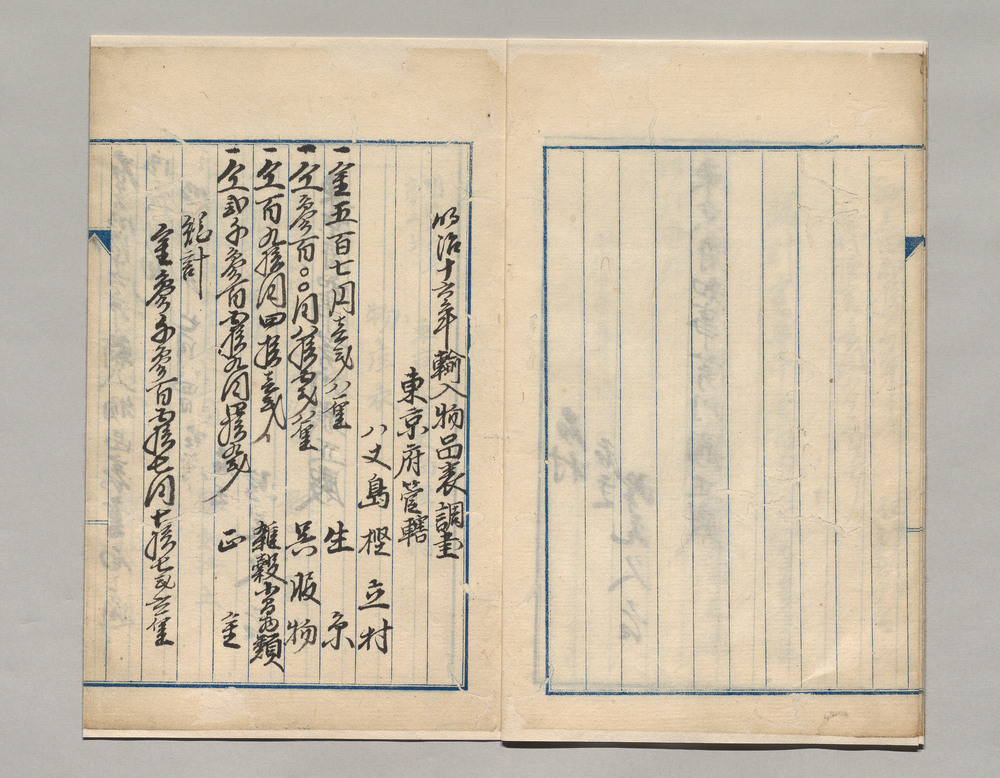 明治十六年輸入物品表調査
東京府管轄
八丈島樫立村
一金五百七円壱銭八厘 生糸
一仝参百〇〇円八拾壱銭八厘 呉服物
一仝百九拾円四拾壱銭 雑穀小間物類
一仝弐千参百五拾九円四拾九銭 正金
総計
金参千参百五拾七円七拾七銭六厘